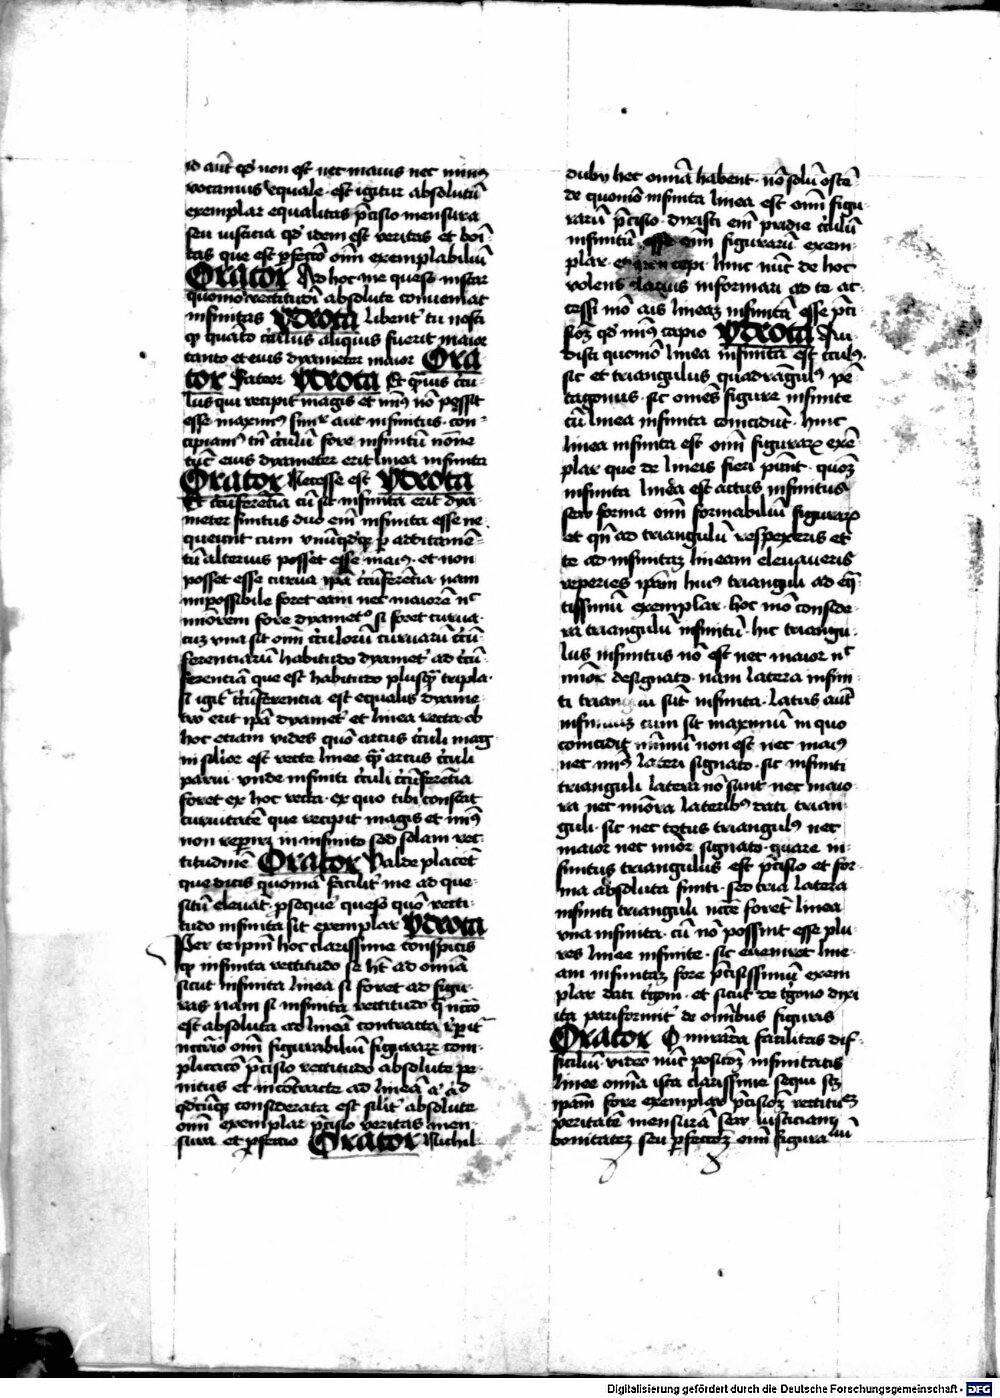 id aut̄ qd̓ non est nec maius nec min⁹
vocamus equale · est igitur absolutū
exemplar equalitas p̄cisio mensura
seu iusticia qd̓ idem est veritas et boni
tas que est p̱fectō om̄ exemplabiliū
Orator Ad hoc me queso instar
quomō rectitudī absolute conveniat
infinitas ydiota libent̓ tu nosti
ꝙ quāto circulus aliquis fuerit maior
tanto et eius dyameter maior Ora
tor Fateor ydiota Et quāuis circu
lus qui recipit magis et min⁹ nō possit
esse maxim⁹ simr̄ aut infinitus · con
cipiam⁹ tn̄ circulū fore infinitū nōne
tūc eius dyameter erit linea infinita
Orator Necesse est ydiota
Et circūferētia cū sit infinita erit dya
meter · infinitus duo em̄ infinita esse ne
queunt cum vnūqd̓qꝫ p̱ additamē
tū alterius posset esse maius · et non
posset esse curua ip̄a circūferētia nam
impossibile foret eam nec maiorē nec
minōrem fore dyametro si foret curua ·
cum vna sit om̄ circulorū curuarū circū
ferentiarū habitudo dyametri ad circū
ferentiā que est habitudo plusqꝫ tripla ·
si igit̓ circūferentia est equalis dyame
tro erit ip̄a dyamet̓ et linea recta ob
hoc etiam vides quō arcus circuli mag
ni silior est recte linee qꝫ arcus circuli
parui · vnde infiniti circuli circūferētia
foret ex hoc recta · ex quo tibi constat
curuitatē que recipit magis et min⁹
non reperiri in infinito sed solam rec
titudinē Orator Valde placēt
que dicis quoniā facilit̓ me ad que
situ eleuāt · p̱seque queso quō recti
tudo infinita sit exemplar ydiota
Per te ip̄m hoc clarissime conspicis
ꝙ infinita rectitudo se ht̄ ad omnia
sicut infinita linea si foret ad figu
ras nam si infinita rectitudo q̄ nccō
est absoluta ad lineā contracta rep̱it̓
nccārio om̄ figurabiliū figurarꝝ com
plicatō p̄cisio rectitudo absolute pe
nitus et incōtracte ad lineā aut ad
qd̓cūqꝫ considerata est silit̓ absolute
om̄ exemplar p̄cisio veritas men
sura et p̱fectio Orator Nichil
dubij hec omnia habent · nō solū ostē
de quonio infinita linea est om̄ figu
rarū p̄cisio · dixisti em̄ pridie circulū
infinitū esse om̄ figurarū exem
plar cepi · hinc nūc de hoc
volens latius informari ad te ac
cessi mō ais lineaꝫ infinitā esse p̄ci
sioꝫ qd̓ min⁹ capio ydiota Au
disti quomō linea infinita est circul⁹ ·
sic et triangulus quadrāgul⁹ pē
tagonus · sic omēs figure infinite
cū linea infinita coincidūt · hinc
linea infinita est om̄ figurarꝝ exē
plar que de lineis fieri p̄unt · quoꝫ
infinita linea est actus infinitus
seu forma om̄ formabiliū figurarꝝ
et qn̄ ad triangulū respexeris et
te ad infinitaꝫ lineam eleuaueris
reperies ip̄am huius trianguli ad eq̄
tissimū exemplar · hoc mō conside
ra triangulū infinitū · hic triangu
lus infinitus nō est nec maior nec
minōr designato · nam latera infini
ti sūt infinita · latus aut̄
cum sit maximū in quo
coincidit minimū non est nec maius
nec min⁹ lateri signato · sic infiniti
trianguli latera nō sunt nec maio
ra nec minōra lateribus dati trian
guli · sic nec totus triangulus nec
maior nec minōr signato · quare in
finitus triangulus est p̄cisio et for
ma absoluta finiti · sed tria latera
infiniti trianguli nccē foret linea
vna infinita · cū nō possint esse plu
res linee infinite · sic eueniret line
am infinitaꝫ fore p̄cisissimū exem
plar dati t̓goni · et sicut de t̓gono dixi
ita pariformit̓ de omībus figuris
Orator O miranda facilitas dif
ficiliū · video nūc positoꝫ infinitatis
linee omnia ista clarissime sequi scꝫ
ip̄am fore exemplar p̄cisioꝫ rectitud̓
veritatē mensurā seu iusticiam
bonitatēꝫ seu p̱fectioꝫ om̄ figurabiliū
Digitalisierung gefördert durch die Deutsche Forschungsgemeinschaft - DFG